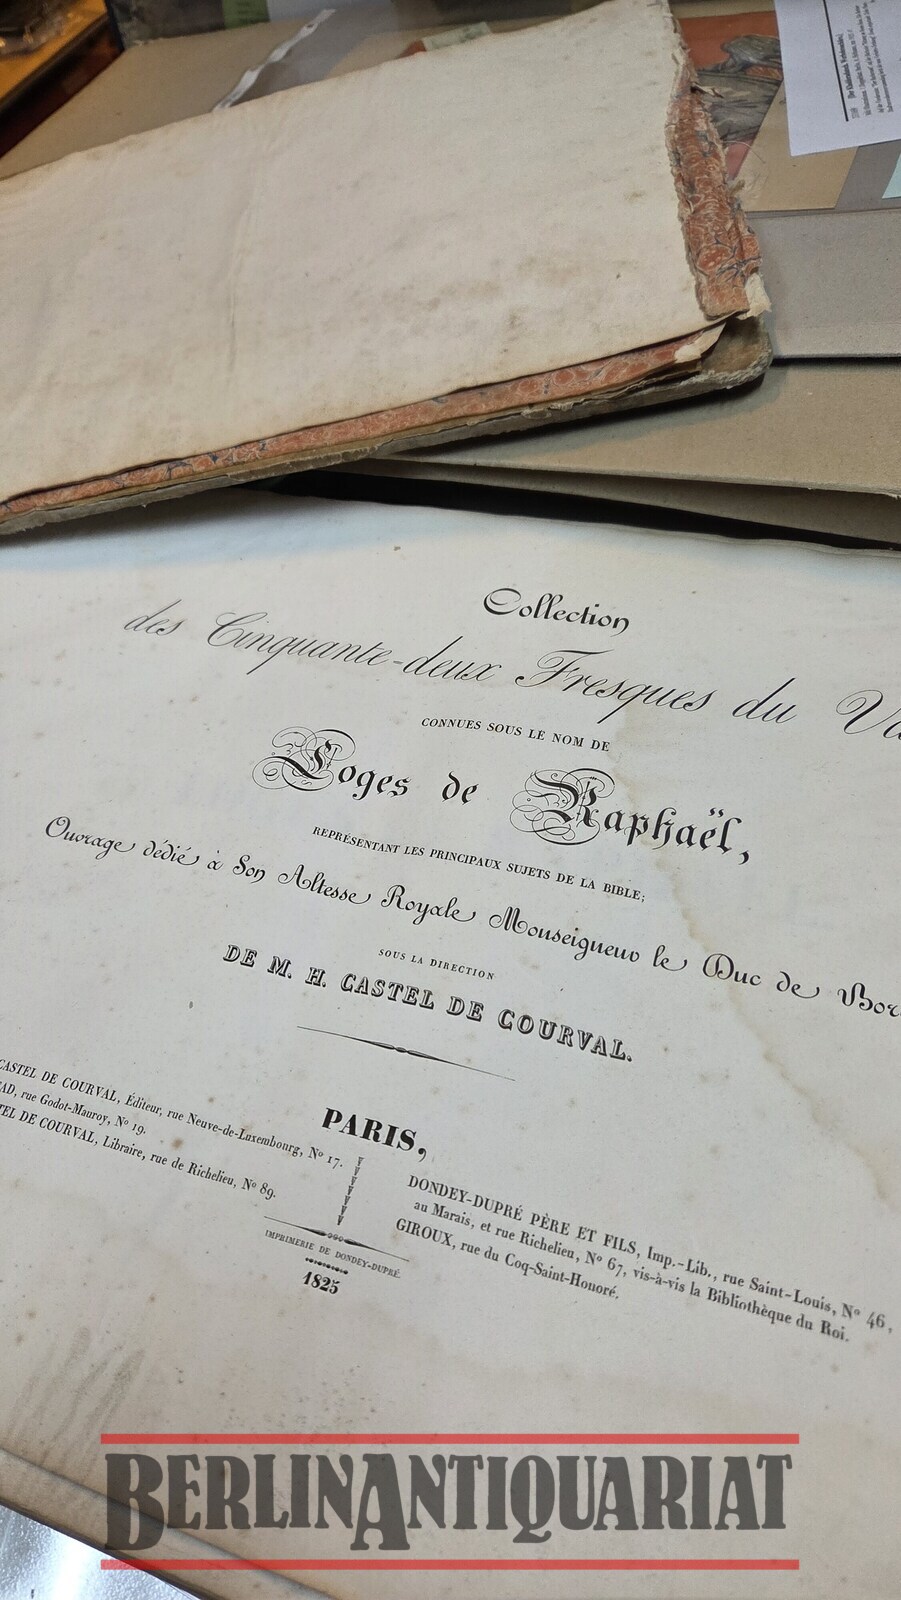 Der Kladderadatsch.
Collection
des Cinquante-deux Fresques du
CONNUES SOUS LE NOM DE
Loges de Raphaël,
REPRÉSENTANT LES PRINCIPAUX SUJETS DE LA BIBLE;
Ouvrage dédié à Son Altesse Royale Monseigneur le Duc de Bor
SOUS LA DIRECTION
DE M. H. CASTEL DE COURVAL.
PARIS,
CASTEL DE COURVAL, Éditeur, rue Neuve-de-Luxembourg, Nº 17.
EAD, rue Godot-Mauroy, Nº 19.
TEL DE COURVAL, Libraire, rue de Richelieu, Nº 89.
DONDEY-DUPRÉ PÈRE ET FILS, Imp.-Lib., rue Saint-Louis, Nº 46,
au Marais, et rue Richelieu, Nº 67, vis-à-vis la Bibliothèque du Roi.
GIROUX, rue du Coq-Saint-Honoré.
IMPRIMERIE DE DONDEY-DUPRÉ.
1825
BERLINANTIQUARIAT